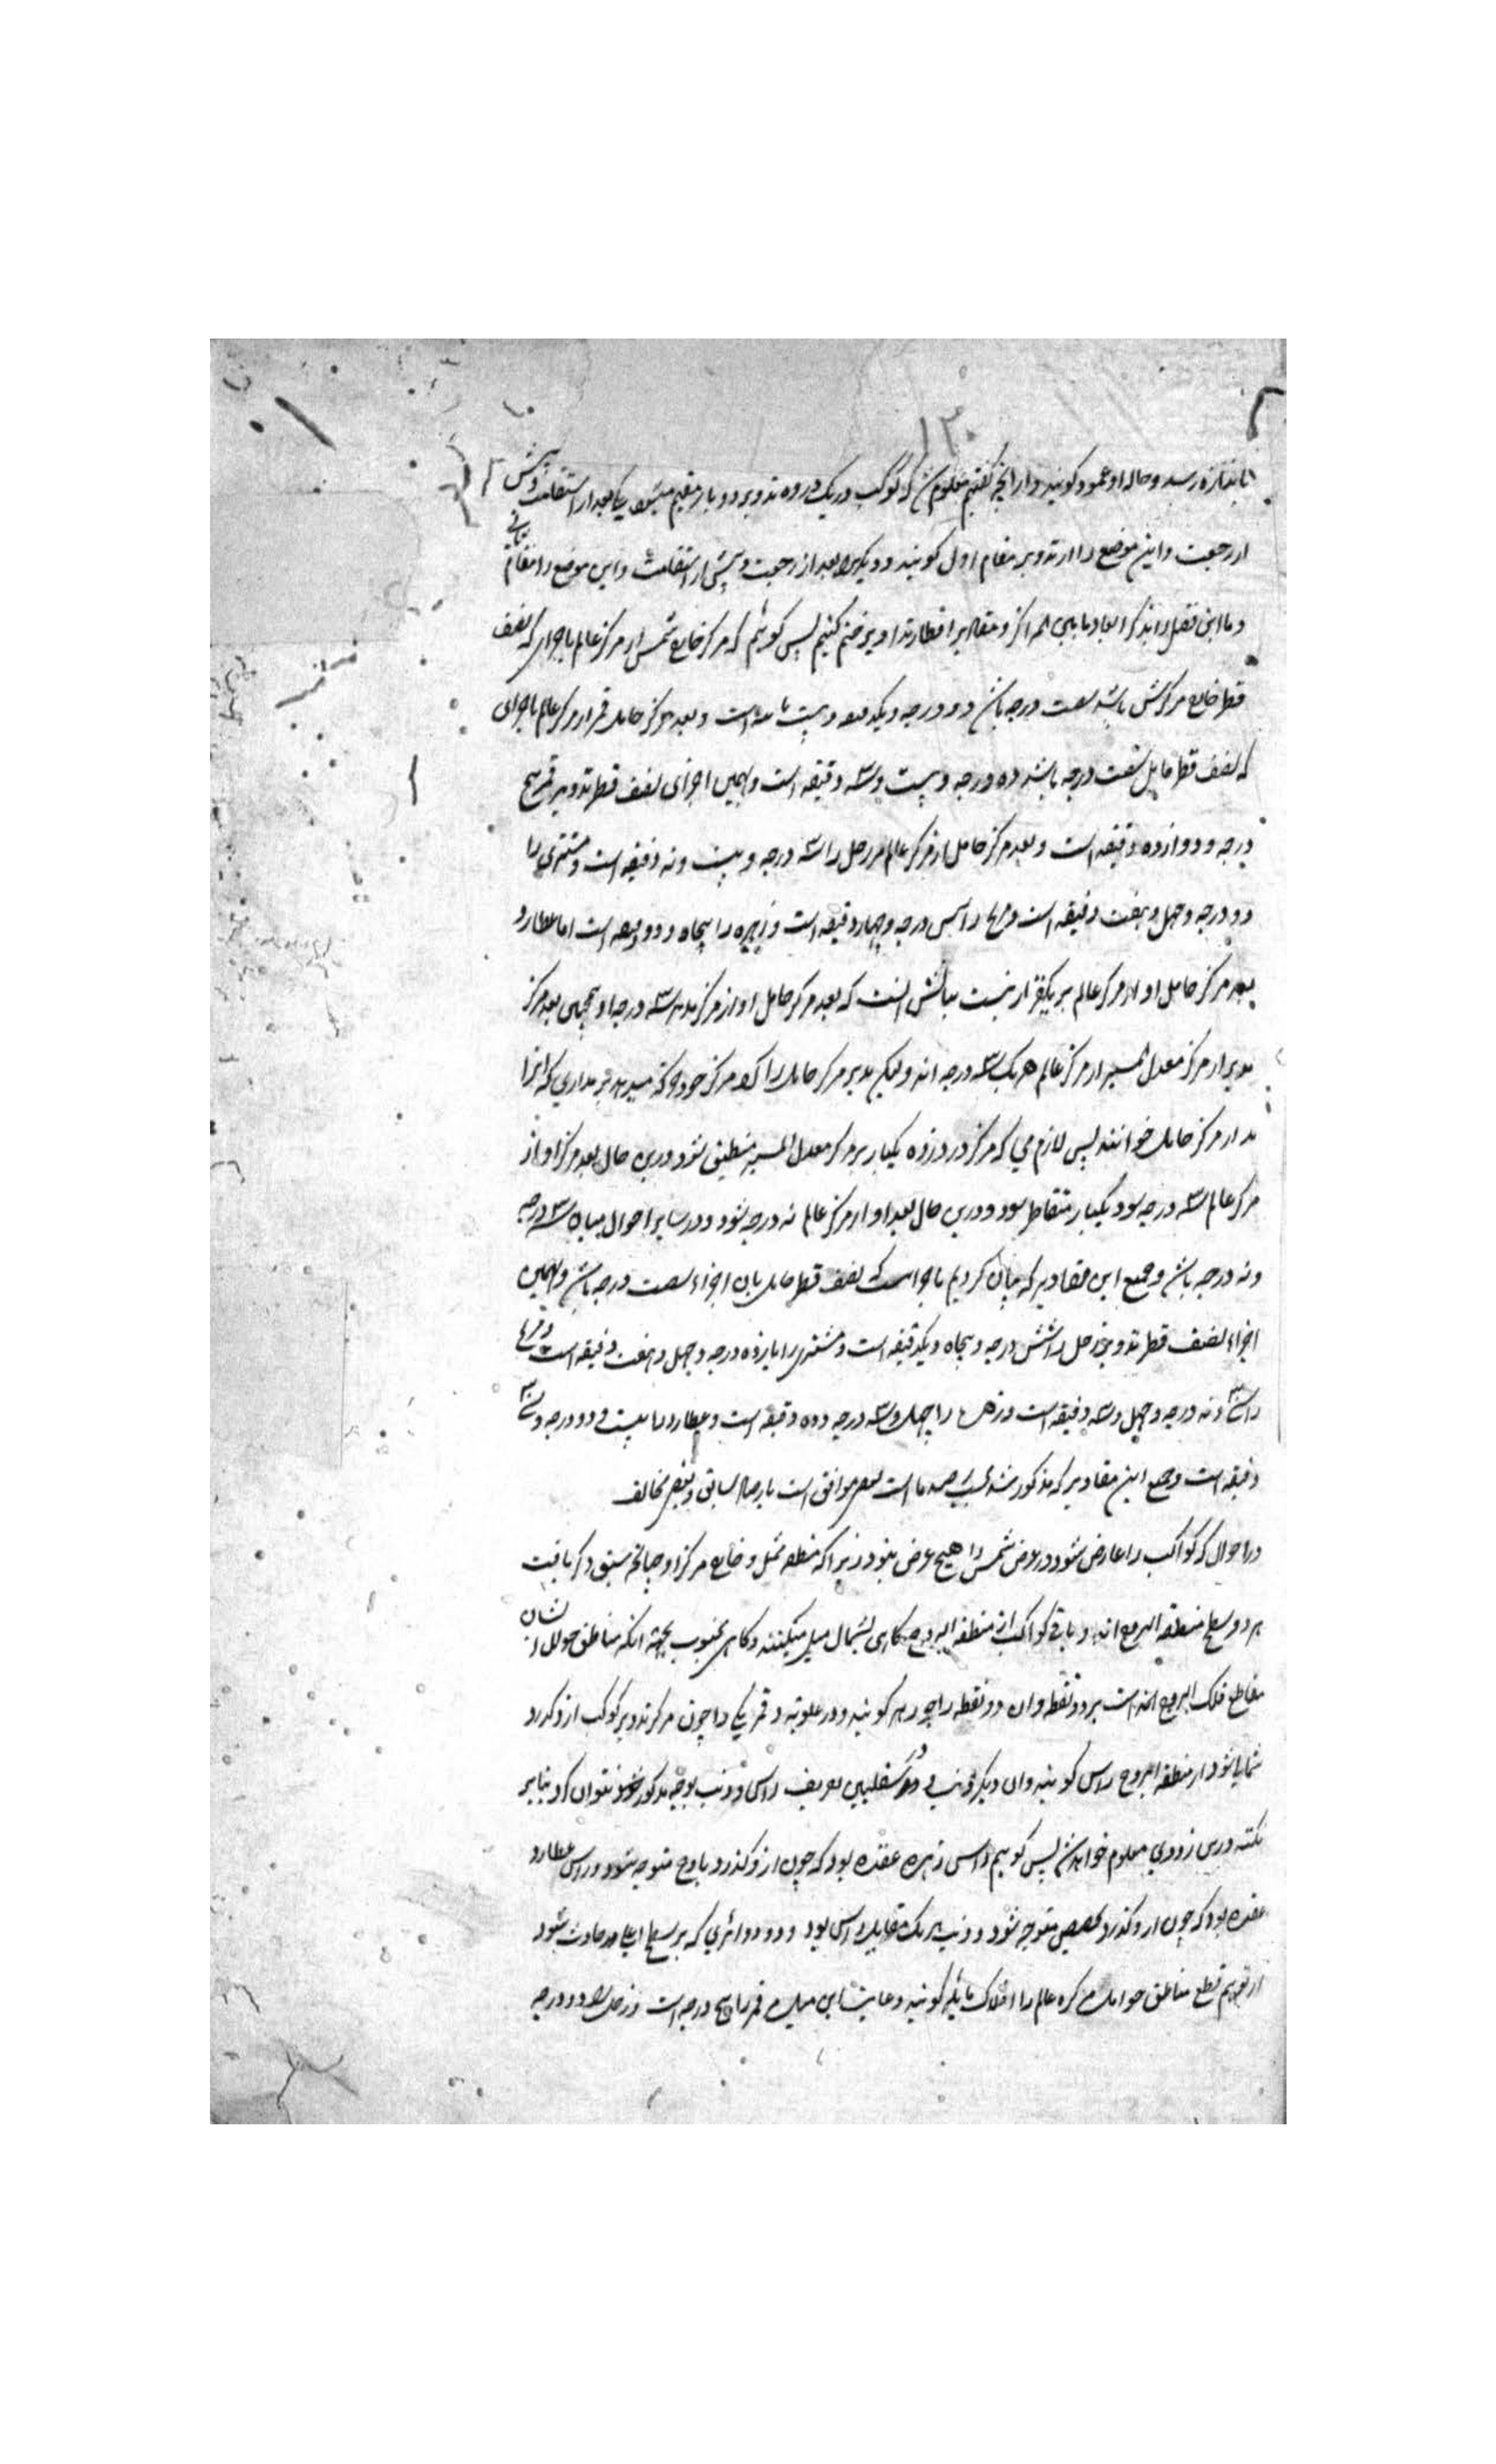 ۱۳۰
تا بندازه رسد و حاله او عمود کویند و از انچه کفتیم معلوم شد که کوکب در یک دروه تدویر دو بار مقیم میشود یکی بعد از استقامت و پیش
از رجعت و این موضع را از تدویر مقام اول کویند و دیکر بعد از رجعت و پیش از استقامت و این موضع را مقام ثانی
و ما این فصل را بذکر ابعاد مابین المراکز و مقادیر اقطار تداویر ختم کنیم پس کوئیم که مرکز خارج شمس از مرکز عالم باجزای که نصف
قطر خارج مرکزش باشد شصت درجه باشد دو درجه و یکدقیقه و بیست ثانیه است و بعد مرکز حامل قمر از مرکز عالم باجزای
که نصف قطر مایل شصت درجه باشد ده درجه و بیست و سه دقیقه است و بهمین اجزای نصف قطر تدویر قمر پنج
درجه و دوازده دقیقه است و بعد مرکز حامل از مرکز عالم مر زحل را سه درجه و بیست و نه دقیقه است و مشتری را
دو درجه و چهل و هفت دقیقه است و مریخ را شش درجه و چهار دقیقه است و زهره را پنجاه و دو دقیقه است اما عطارد
بعد مرکز حامل او از مرکز عالم بر یکقرار نیست بیانش انست که بعد مرکز حامل او از مرکز مدیر سه درجه و همچنین بعد مرکز
مدیر از مرکز معدل المسیر از مرکز عالم هر یک سه درجه اند و لیکن مدیر مرکز حامل را کرد مرکز خود حرکه میدهد بر مداری که انرا
مدار مرکز حامل خوانند پس لازم می که مرکز در دوره یکبار بر مرکز معدل المسیر منطبق شود و درین حال بعد مرکز او از
مرکز عالم سه درجه بود و یکبار متقاطر شود و درین حال بعد او از مرکز عالم نه درجه شود و در سایر احوال میان سه درجه
و نه درجه باشد و جمیع این مقادیر که بیان کردیم باجزاست که نصف قطر حامل بان اجزاء شصت درجه باشد و بهمین
اجزاء نصف قطر تدویر زحل را شش درجه و پنجاه و یکدقیقه است و مشتری را یازده درجه و چهل و هفت دقیقه است و مریخ
را سی و نه درجه و چهل و سه دقیقه است و زهره را چهل و سه درجه و ده دقیقه است و عطارد را بیست و دو درجه و سی
دقیقه است و جمیع این مقادیر که مذکور شد بحسب رصد ما است بعضی موافق است با رصد سابق و بعضی مخالف
در احوال که کواکب را عارض شود در عرض شمس را هیچ عرض نبود زیرا که منطقه ممثل و خارج مرکز او چنانچه سبق ذکر یافت
هر دو سطح منطقه البروج اند و باقی کواکب از منطقه البروج کاهی بشمال میل میکنند و کاهی بجنوب بجهته انکه مناطق حوامل ایشان
مقاطع فلک البروج اند است بر دو نقطه و ان دو نقطه را جوزهر کویند و در علویه و قمر یکی را چون مرکز تدویر کوکب ازو کذرد
شمالی شود از منطقه البروج راس کویند و ان دیکر ذنب و در سفلیین تعریف راس و ذنب بوجه مذکور نتوان کرد بنابر
نکته درس زودی معلوم خواهد شد پس کوییم راس زهره عقده بود که چون ازو کذرد باوج متوجه شود و راس عطارد
عقده بود که چون ازو کذرد بحضیض متوجه شود و ذنب هر یک مقابل راس بود و دو دوائری که بر سطح اعلی حادث شود
از توهم قطع مناطق حوامل کره عالم را افلاک مایله کویند و غایت این میل قمر را پنج درجه است و زحل را دو درجه